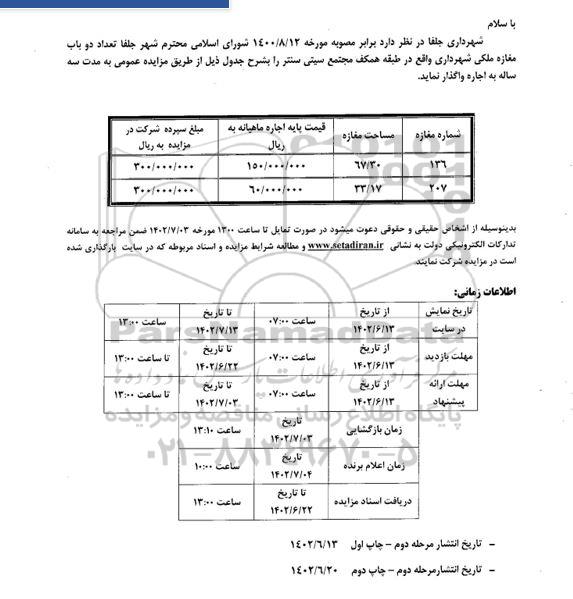 با سلام
شهرداری جلفا در نظر دارد برابر مصوبه مورخه ۱۴۰۰/۸/۱۲ شورای اسلامی محترم شهر جلفا تعداد دو باب
مغازه ملکی شهرداری واقع در طبقه همکف مجتمع سیتی سنتر را بشرح جدول ذیل از طریق مزایده عمومی به مدت سه
ساله به اجاره واگذار نماید.
شماره مغازه مساحت مغازه قیمت پایه اجاره ماهیانه به ریال مبلغ سپرده شرکت در مزایده به ریال
۱۳۶ ۶۷/۳۰ ۱۵۰/۰۰۰/۰۰۰ ۳۰۰/۰۰۰/۰۰۰
۲۰۷ ۳۳/۱۷ ۶۰/۰۰۰/۰۰۰ ۳۰۰/۰۰۰/۰۰۰
بدینوسیله از اشخاص حقیقی و حقوقی دعوت میشود در صورت تمایل تا ساعت ۱۳۰۰ مورخه ۱۴۰۲/۷/۰۳ ضمن مراجعه به سامانه
تدارکات الکترونیکی دولت به نشانی www.setadiran.ir و مطالعه شرایط مزایده و اسناد مربوطه که در سایت بارگذاری شده
است در مزایده شرکت نمایند.
اطلاعات زمانی:
تاریخ نمایش در سایت از تاریخ ۱۴۰۲/۶/۱۳ ساعت ۰۷:۰۰ تا تاریخ ۱۴۰۲/۷/۱۳ ساعت ۱۳:۰۰
مهلت بازدید از تاریخ ۱۴۰۲/۶/۱۳ ساعت ۰۷:۰۰ تا تاریخ ۱۴۰۲/۶/۲۲ تا ساعت ۱۳:۰۰
مهلت ارائه پیشنهاد از تاریخ ۱۴۰۲/۶/۱۳ ساعت ۰۷:۰۰ تا تاریخ ۱۴۰۲/۷/۰۳ تا ساعت ۱۳:۰۰
زمان بازگشایی تاریخ ۱۴۰۲/۷/۰۳ ساعت ۱۳:۱۰
زمان اعلام برنده تاریخ ۱۴۰۲/۷/۰۴ ساعت ۱۰:۰۰
دریافت اسناد مزایده تا تاریخ ۱۴۰۲/۶/۲۲ ساعت ۱۳:۰۰
- تاریخ انتشار مرحله دوم – چاپ اول ۱۴۰۲/۶/۱۳
- تاریخ انتشارمرحله دوم – چاپ دوم ۱۴۰۲/۶/۲۰
ParsNamadData
پایگاه اطلاع رسانی مناقصه و مزایده
۰۲۱-۸۸۳۴۹۶۷۰-۵